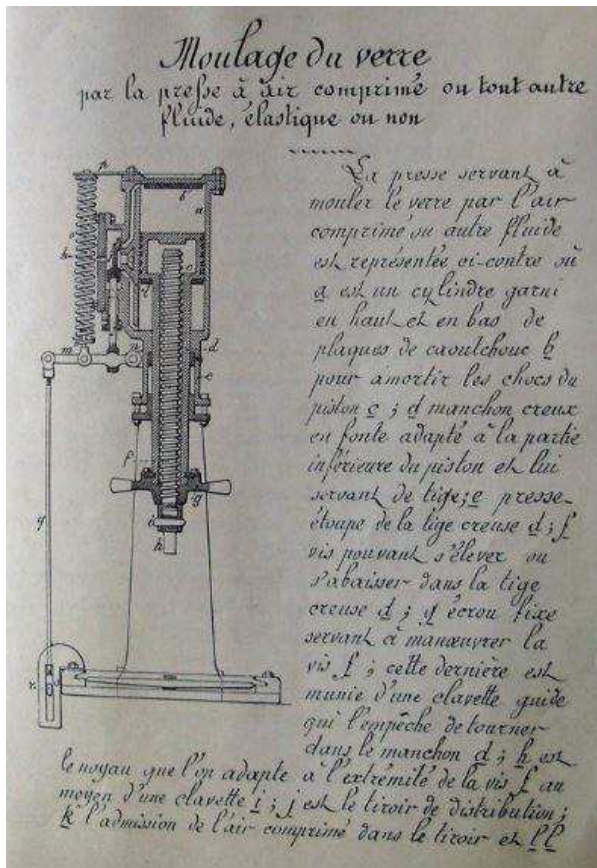 Moulage du verre
par la presse à air comprimé ou tout autre
fluide, élastique ou non
La presse servant à
mouler le verre par l'air
comprimé ou autre fluide
est représentée ci-contre où
a est un cylindre garni
en haut et en bas de
plaques de caoutchouc b
pour amortir les chocs du
piston c ; d manchon creux
en fonte adapté à la partie
inférieure du piston et lui
servant de tige ; e presse-
étoupe de la tige creuse d ; f
vis pouvant s'élever ou
s'abaisser dans la tige
creuse d ; g écrou fixe
servant à manœuvrer la
vis f ; cette dernière est
munie d'une clavette guide
qui l'empêche de tourner
dans le manchon d ; h est
le noyau que l'on adapte à l'extremité de la vis f au
moyen d'une clavette i ; j est le tiroir de distribution ;
k l'admission de l'air comprimé dans le tiroir et l l
p
b
a
c
l
m
n
d
e
f
g
h
q
r